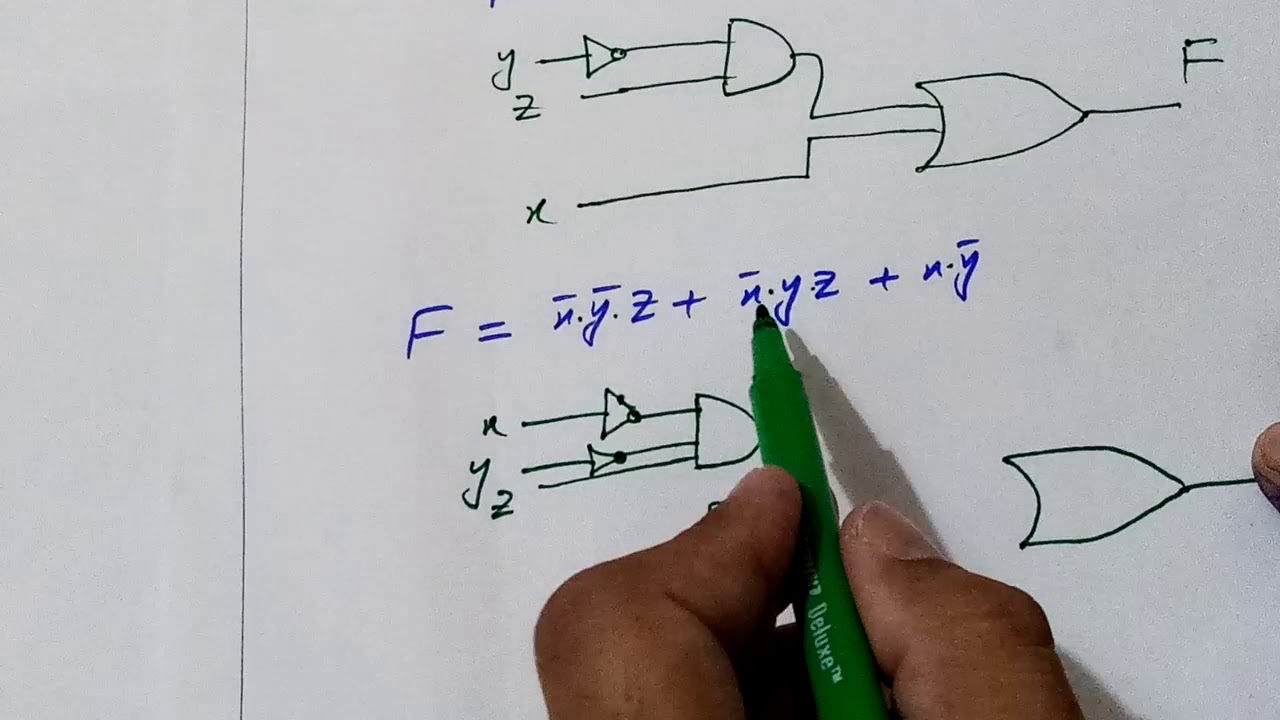 y
z
F
x
F = x̄.ȳ.z + x̄.y.z + x.ȳ
x
y
z
Deluxe™